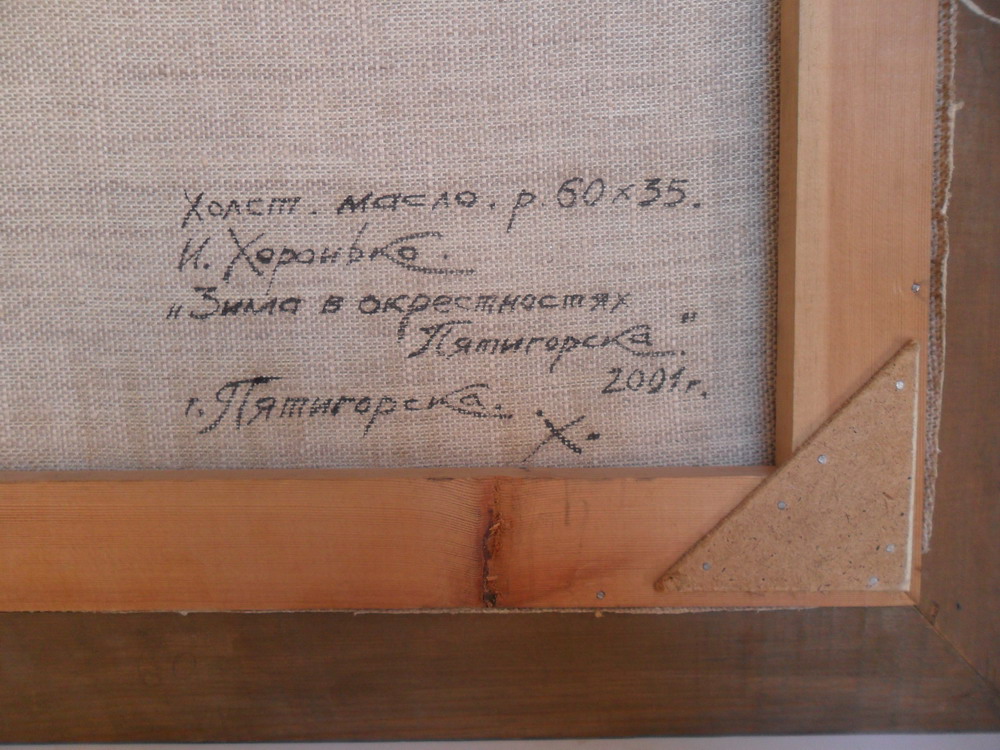 Холст. масло. р. 60×35.
И. Хоронько.
„Зима в окрестностях
Пятигорска."
2001г.
г. Пятигорска. .Х.